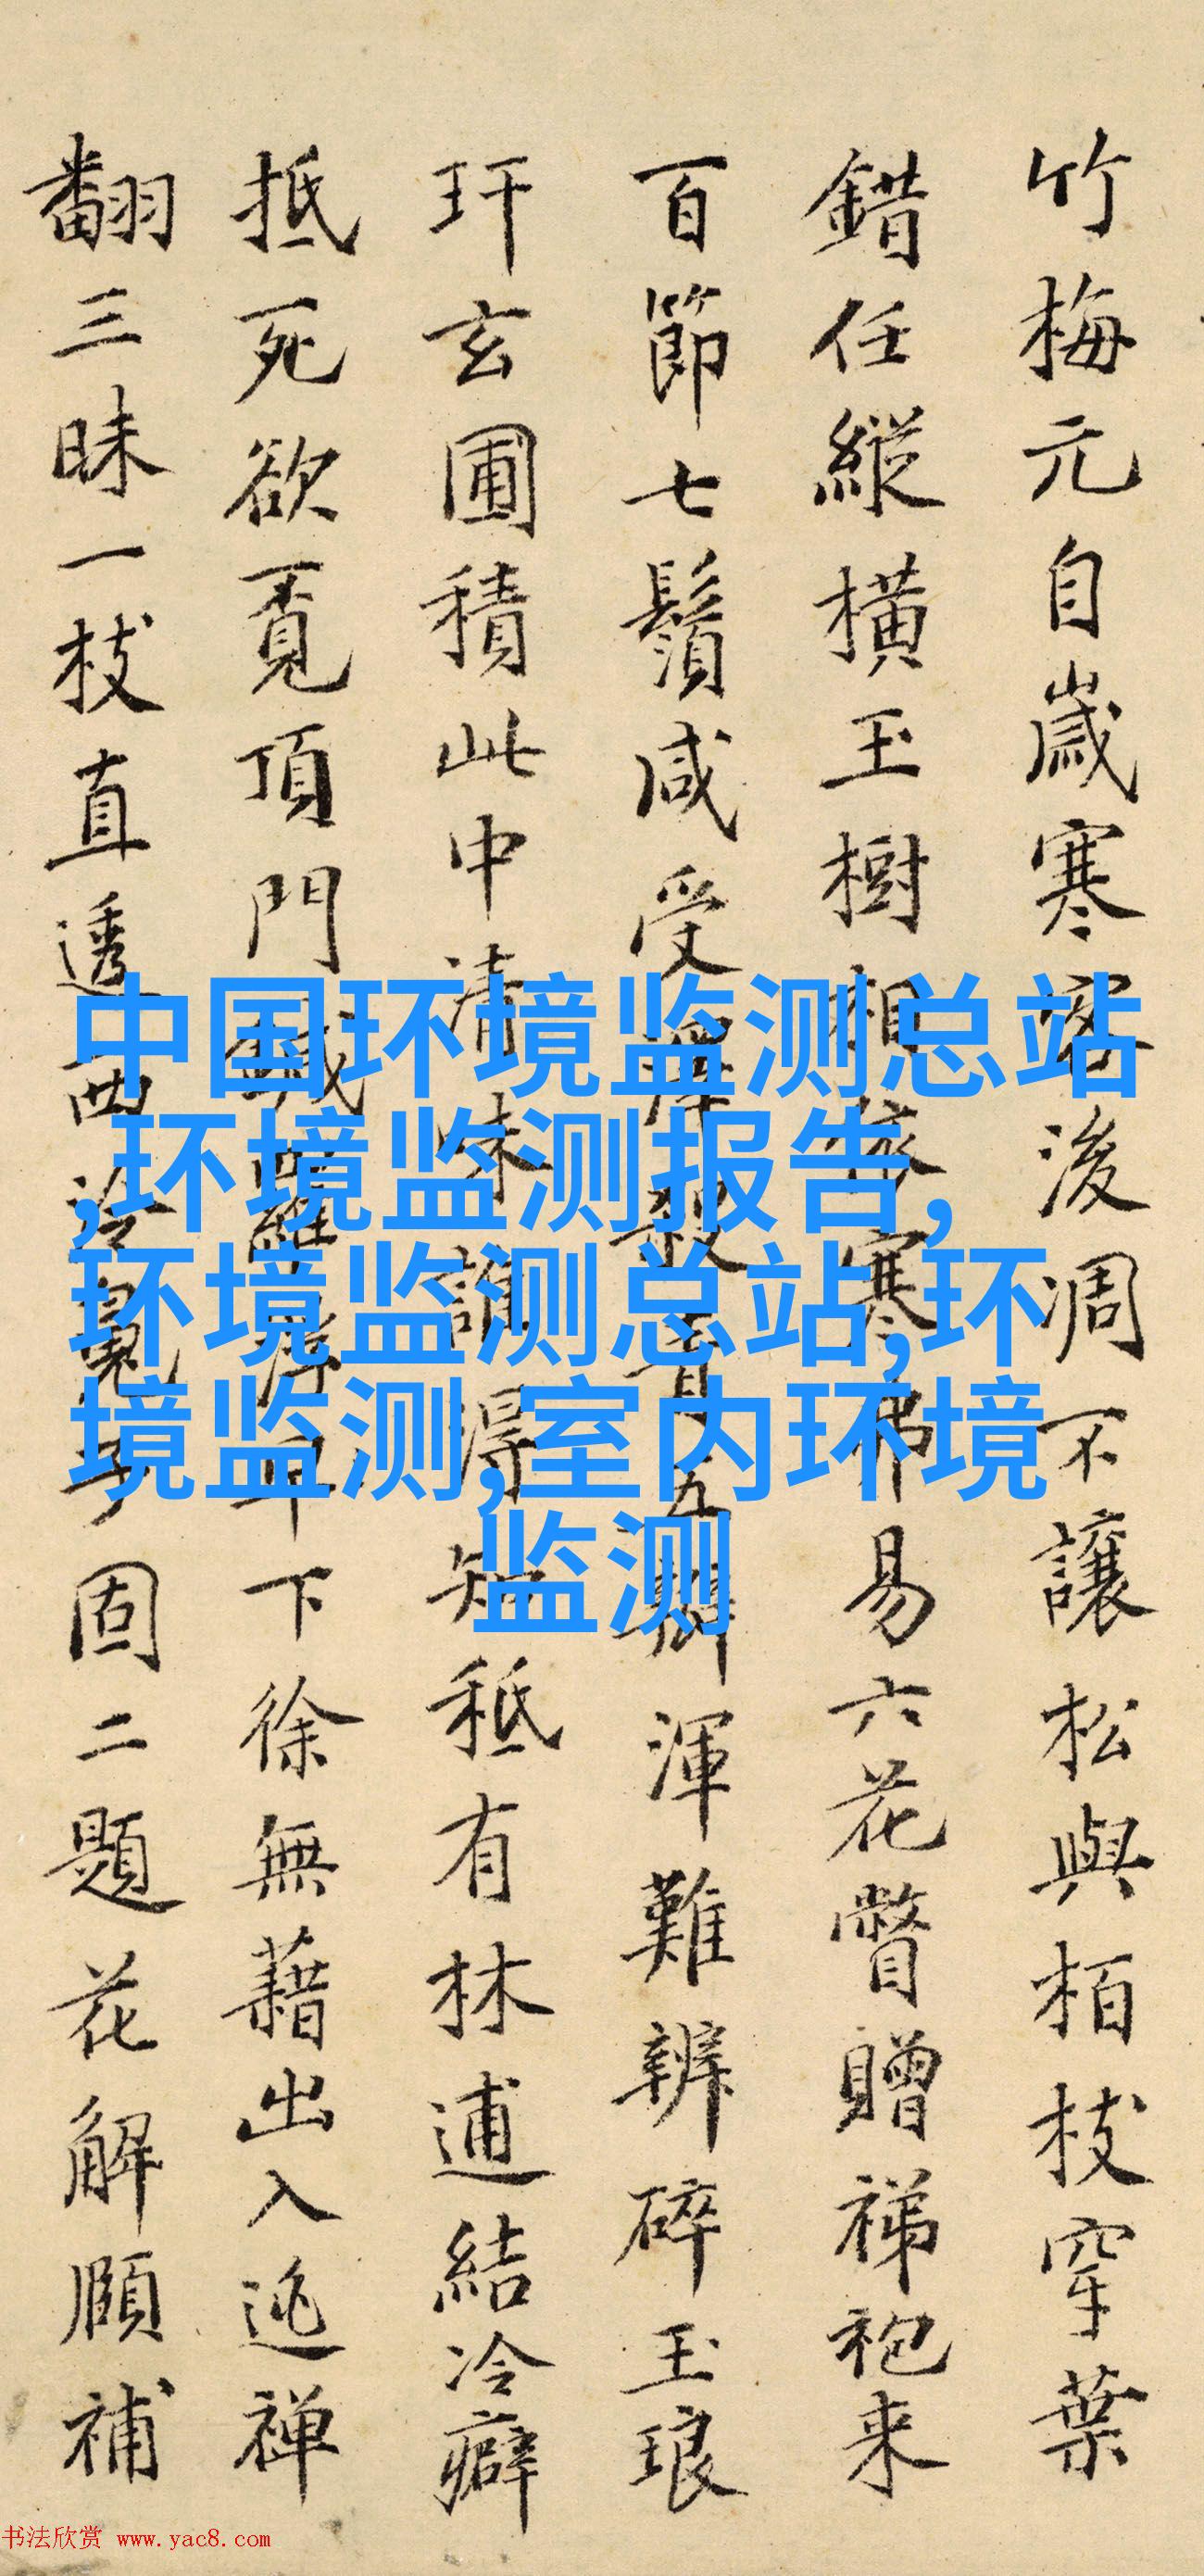 竹梅元自歲寒客後凋不讓松與栢枝穿葉
錯任縱橫玉樹相依寒弗易六花瞥贈祶袍来
百節七鬚咸受澤毅青五瓣渾難辨碎玉琅
玕玄圃積此中清味誰得知秪有林逋結冷癖
抵死欲覔頂門下徐無藉出入逃禅
翻三昧一枝直透西泠固二題花解頤補
中国环境监测总站
,环境监测报告,
环境监测总站,环
境监测,室内环境
监测
书法欣赏 www.yac8.com